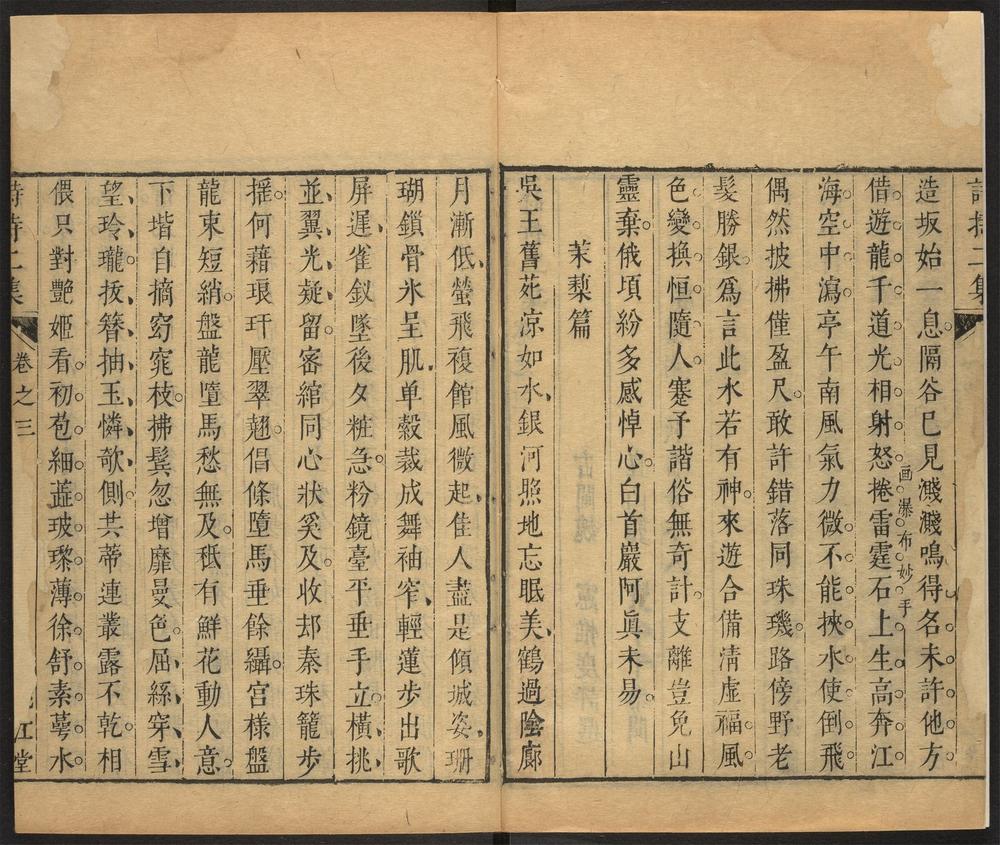 二集
造坂始一息隔谷已見濺濺鳴得名未許他方
借遊龍千道光相射怒捲雷霆石上生高奔江
画瀑布妙手
海空中瀉亭午南風氣力微不能挾水使倒飛
偶然披拂僅盈尺敢許錯落同珠璣路傍野老
髮勝銀為言此水若有神來遊合備清虛福風
色變換恒隨人蹇予諧俗無奇計支離豈免山
靈棄俄頃紛多感悼心白首巖阿真未易
茉䔧篇
吳王舊苑凉如水銀河照地忘眠美鶴過陰廊
月漸低螢飛複館風微起佳人盡是傾城姿珊
瑚鎖骨氷呈肌单縠裁成舞袖窄輕蓮步出歌
屏遲雀釵墜後夕粧急粉鏡臺平垂手立橫挑
並翼光凝留密綰同心狀奚及收却秦珠籠步
摇何藉琅玕壓翠翹倡條墮馬垂餘鬟宮樣盤
龍束短綃盤龍墮馬愁無及秪有鮮花動人意
下堦自摘窈窕枝拂鬓忽增靡曼色屈絲穿雪
望玲瓏扳簪抽玉憐欹側共蒂連叢露不乾相
偎只對艷姬看初苞細蘸玻瓈薄徐舒素萼水
詩持二集
卷之三
江堂